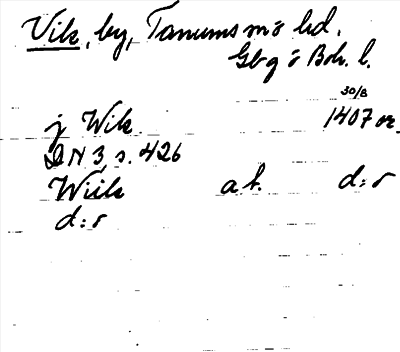 Vik, by, Tanums sn o hd.
Gbg o Boh. l.
30/8
j Wik 1407 or.
DN 3, s. 426
Wiik a.b. d:o
d:o